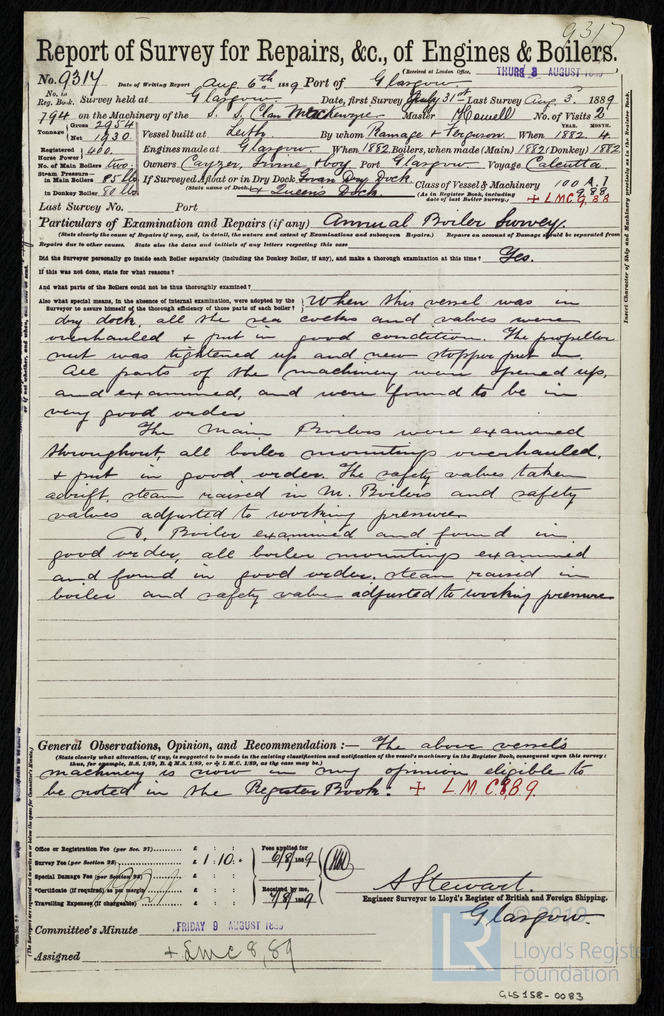 9317
Report of Survey for Repairs, &c., of Engines & Boilers.
(Received at London Office, THURS 8 AUGUST 18
No. 9314 Date of Writing Report Aug 6th 1889 Port of Glasgow
No. in Reg. Book. Survey held at Glasgow Date, first Survey July 31st Last Survey Aug 3. 1889
794 on the Machinery of the S. S. Clan Mackenzie Master No. of Visits 2
Tonnage Gross 2954 Net 1930 Vessel built at Leith By whom Ramage & Ferguson When 1882 YEAR. MONTH. 4
Registered Horse Power 400 Engines made at Glasgow When 1882 Boilers, when made (Main) 1882 (Donkey) 1882
No. of Main Boilers two Owners Cayzer, Irvine & Coy Port Glasgow Voyage Calcutta
Steam Pressure in Main Boilers 85 lbs If Surveyed Afloat or in Dry Dock Govan Dry Dock Class of Vessel & Machinery 100 A 1
in Donkey Boiler 80 lbs (State name of Dock.) & Queens Dock (As in Register Book, including date of last Boiler Survey.) + L.M.C. 9.88
Last Survey No. Port
Particulars of Examination and Repairs (if any) Annual Boiler Survey.
(State clearly the cause of Repairs if any, and, in detail, the nature and extent of Examinations and subsequent Repairs.) Repairs on account of Damage should be separated from
Repairs due to other causes. State also the dates and initials of any letters respecting this case
Did the Surveyor personally go inside each Boiler separately (including the Donkey Boiler, if any), and make a thorough examination at this time? Yes.
If this was not done, state for what reasons?
And what parts of the Boilers could not be thus thoroughly examined?
Also what special means, in the absence of internal examination, were adopted by the Surveyor to assure himself of the thorough efficiency of those parts of each boiler? When this vessel was in
dry dock, all the sea cocks and valves were
overhauled & put in good condition. The propeller
nut was tightened up and new stopper put in.
All parts of the machinery were opened up,
and examined, and were found to be in
very good order
The Main Boilers were examined
throughout, all boiler mountings overhauled,
& put in good order. The safety valves taken
adrift, steam raised in M. Boilers and safety
valves adjusted to working pressure
D. Boiler examined and found in
good order, all boiler mountings examined
and found in good order, steam raised in
boiler and safety valve adjusted to working pressure
General Observations, Opinion, and Recommendation :— The above vessel's
(State clearly what alteration, if any, is suggested to be made in the existing classification and notification of the vessel's machinery in the Register Book, consequent upon this survey:
thus, for example, B.S. 1/89, B. & M.S. 1/89, or + L.M.C. 1/89, as the case may be.)
machinery is now in my opinion eligible to
be noted in the Register Book. + L.M.C. 8.89.
Office or Registration Fee (per Sec. 27) £ : :
Survey Fee (per Section 28) £ 1 : 10 :
Special Damage Fee (per Section 28) £ : :
*Certificate (if required) as per margin £ : :
Travelling Expenses (if chargeable) £ : :
Fees applied for 6/8/1889
Received by me, 7/8/1889
A Stewart.
Engineer Surveyor to Lloyd's Register of British and Foreign Shipping.
Glasgow.
Committee's Minute FRIDAY 9 AUGUST 1889
Assigned + LMC 8,89
Insert Character of Ship and Machinery precisely as in the Register Book.
© 2019
LR
Lloyd's Register
Foundation
GLS 158-0083